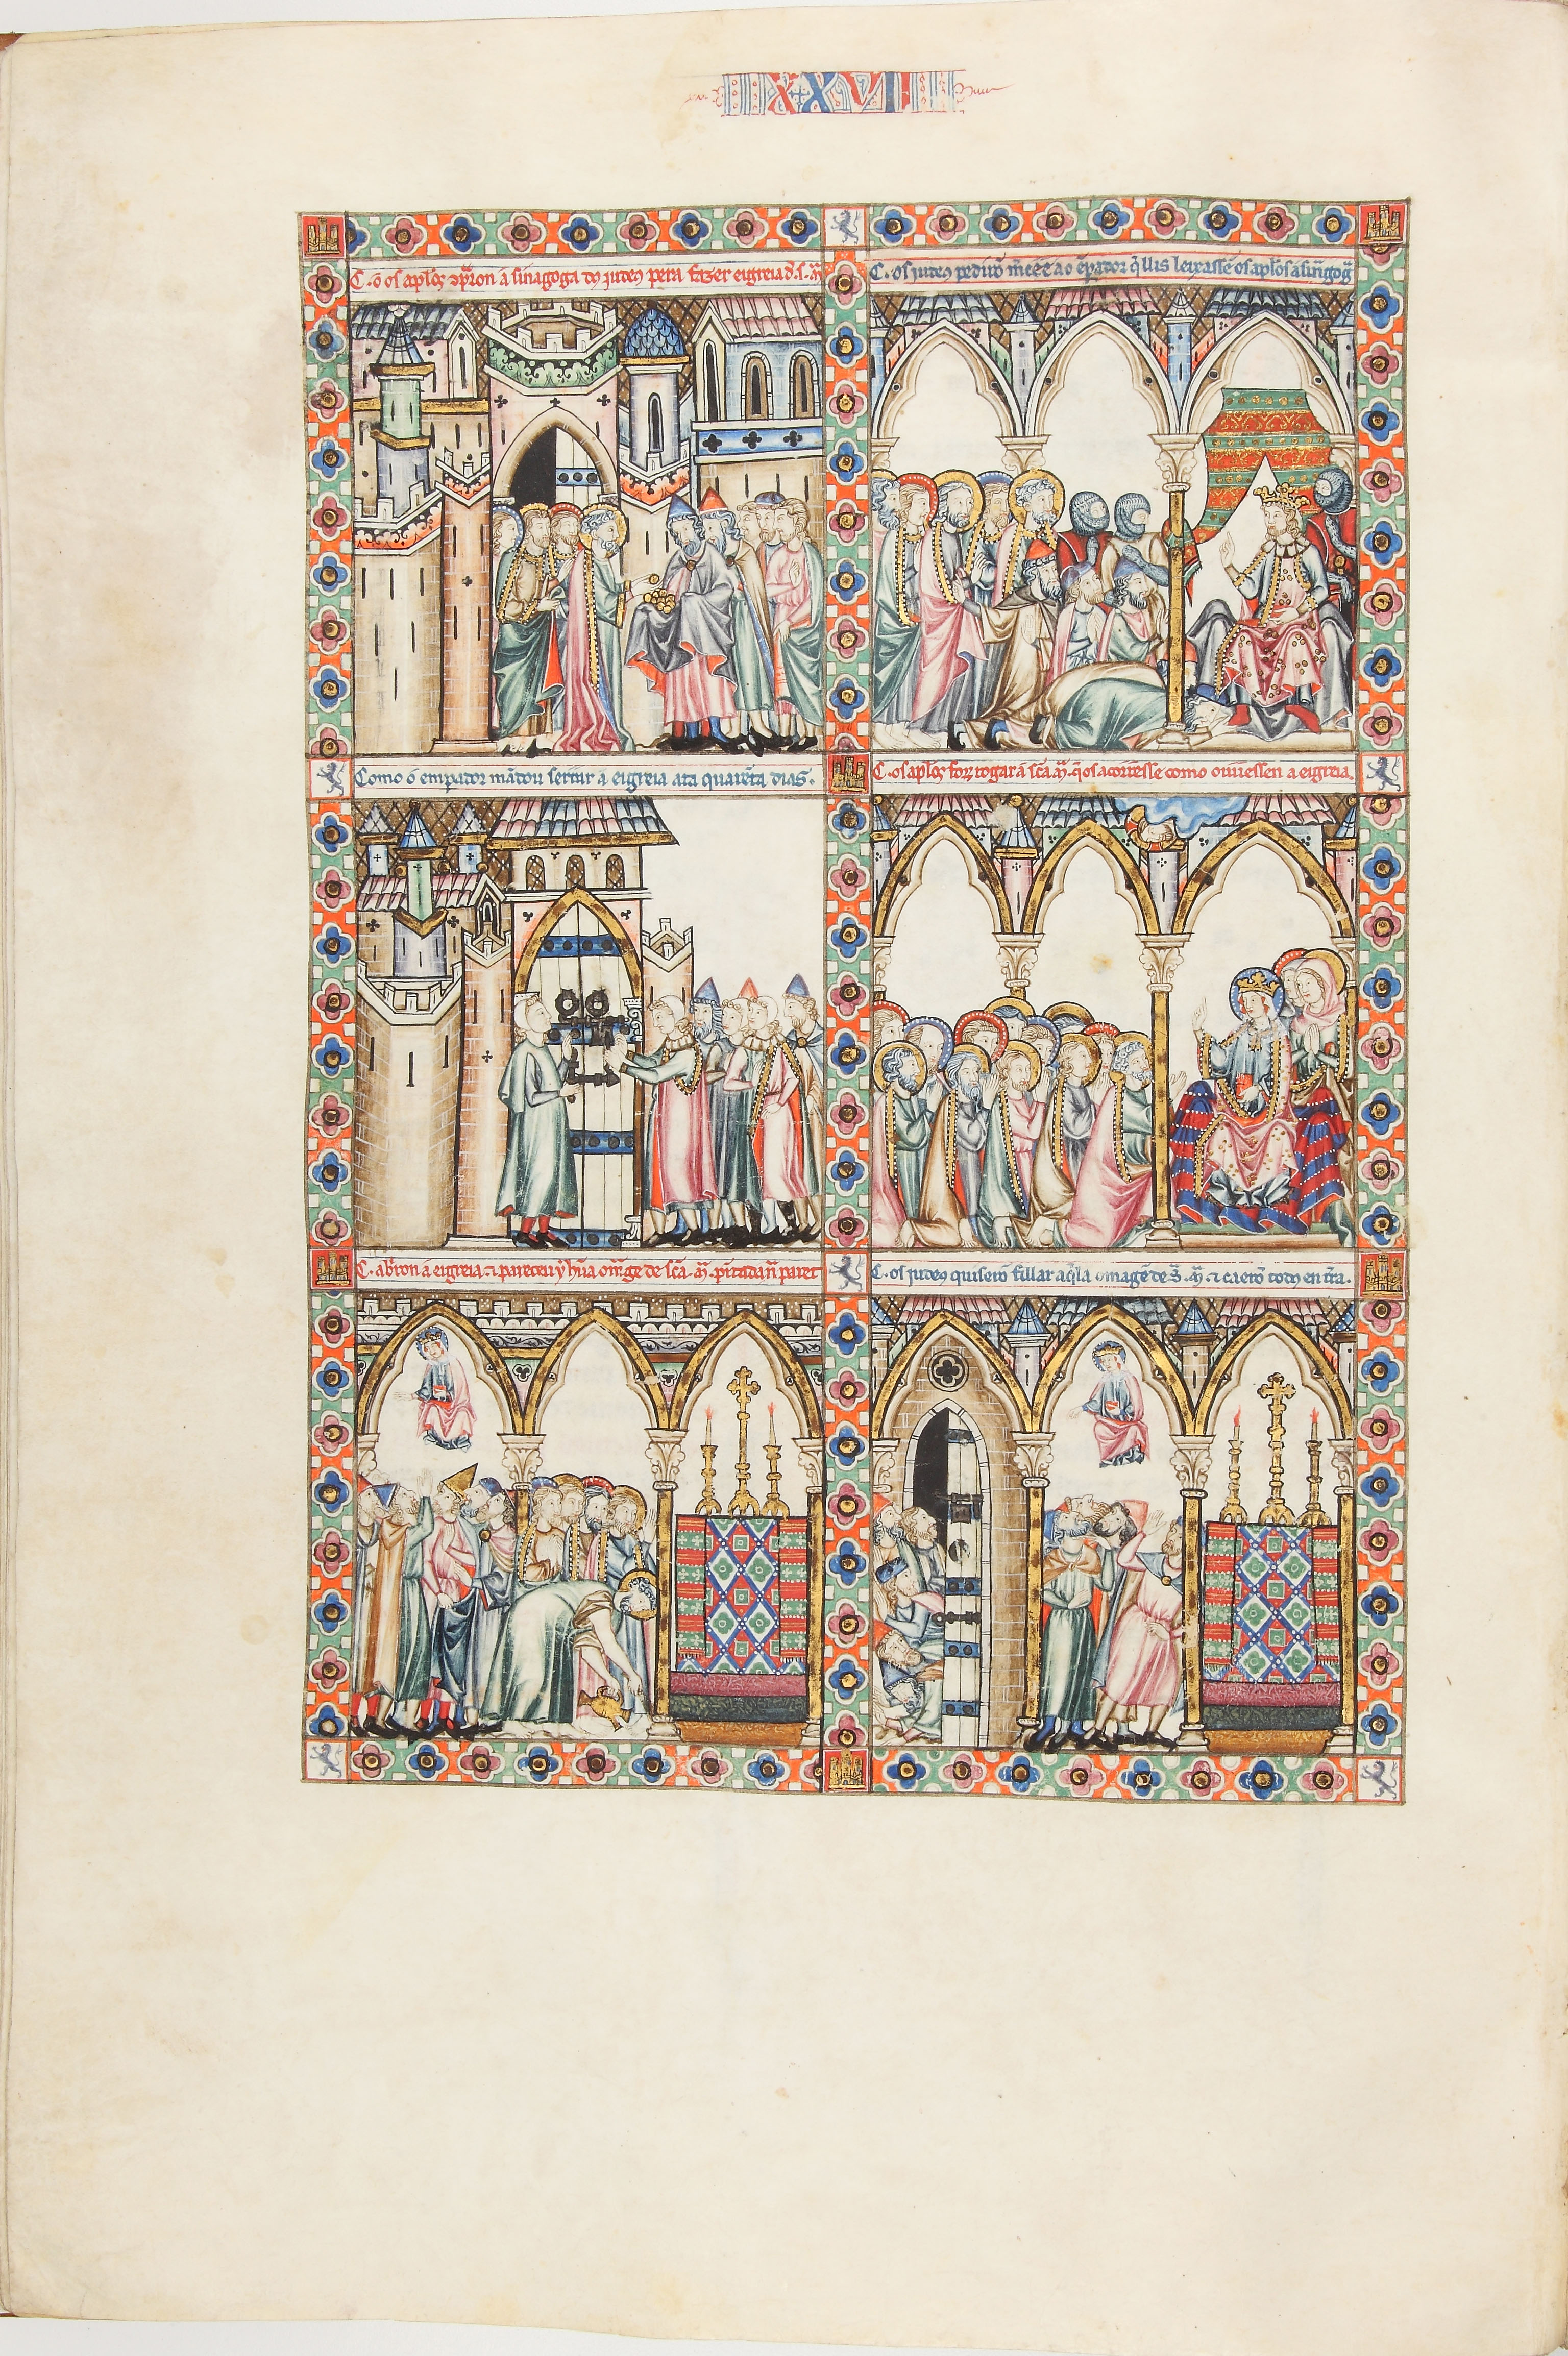 XXVII
C. õ os aplos 9pron a sinagoga dos judeus pera fazer eigreia d. s. mª
C. os judeus pediron merece ao enpador q̃ llis leixasse os aplos a sinagog
Como o empador mãdou serrar a eigreia ata quareta dias.
C. os aplos foron rogar a scã mª q̃ os acorresse como ouuessen a eigreia.
C. abriron a eigreia ⁊ pareceu y hũa omage de scã mª pintada na paret
C. os judeus quiserõ fillar aq̃la omagẽ de s. mª ⁊ caerõ todos en trã.